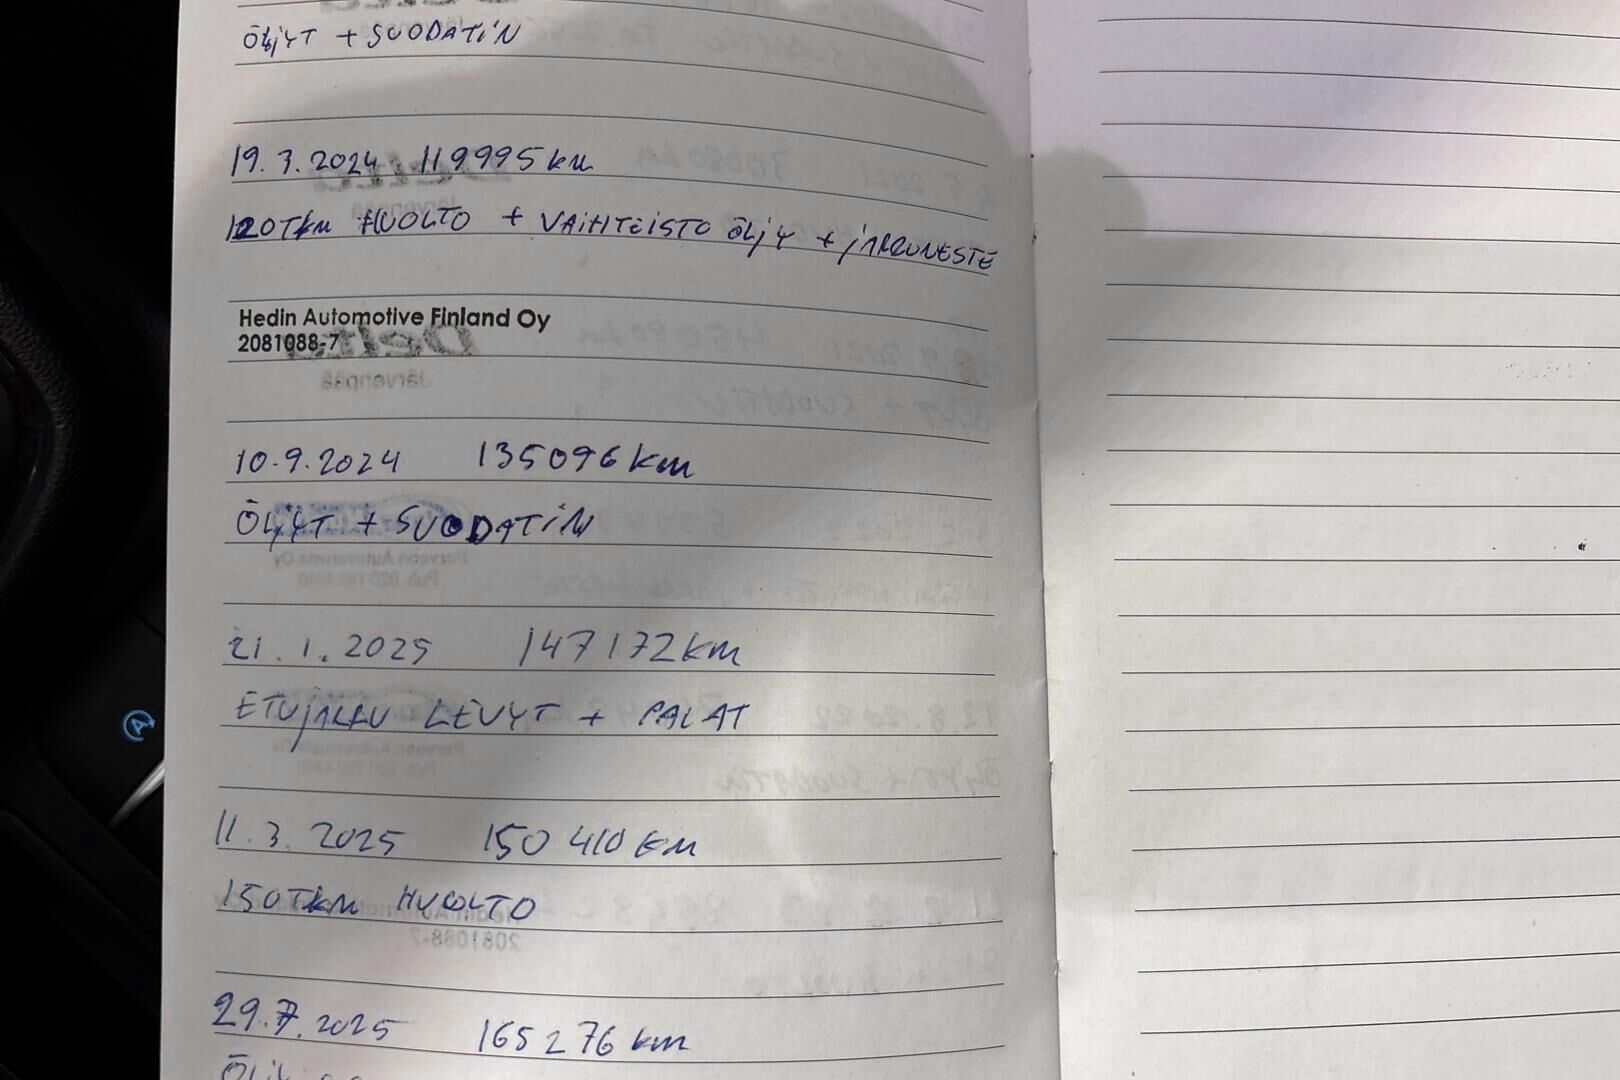 ÖLJYT + SUODATIN
19.3.2024 119995 km
120TKM HUOLTO + VAIHTEISTO ÖLJY + JARRUNESTE
Hedin Automotive Finland Oy
2081088-7
10.9.2024 135096 km
ÖLJYT + SUODATIN
21.1.2025 147172 km
ETUJARRU LEVYT + PALAT
11.3.2025 150 410 km
150TKM HUOLTO
29.7.2025 165276 km